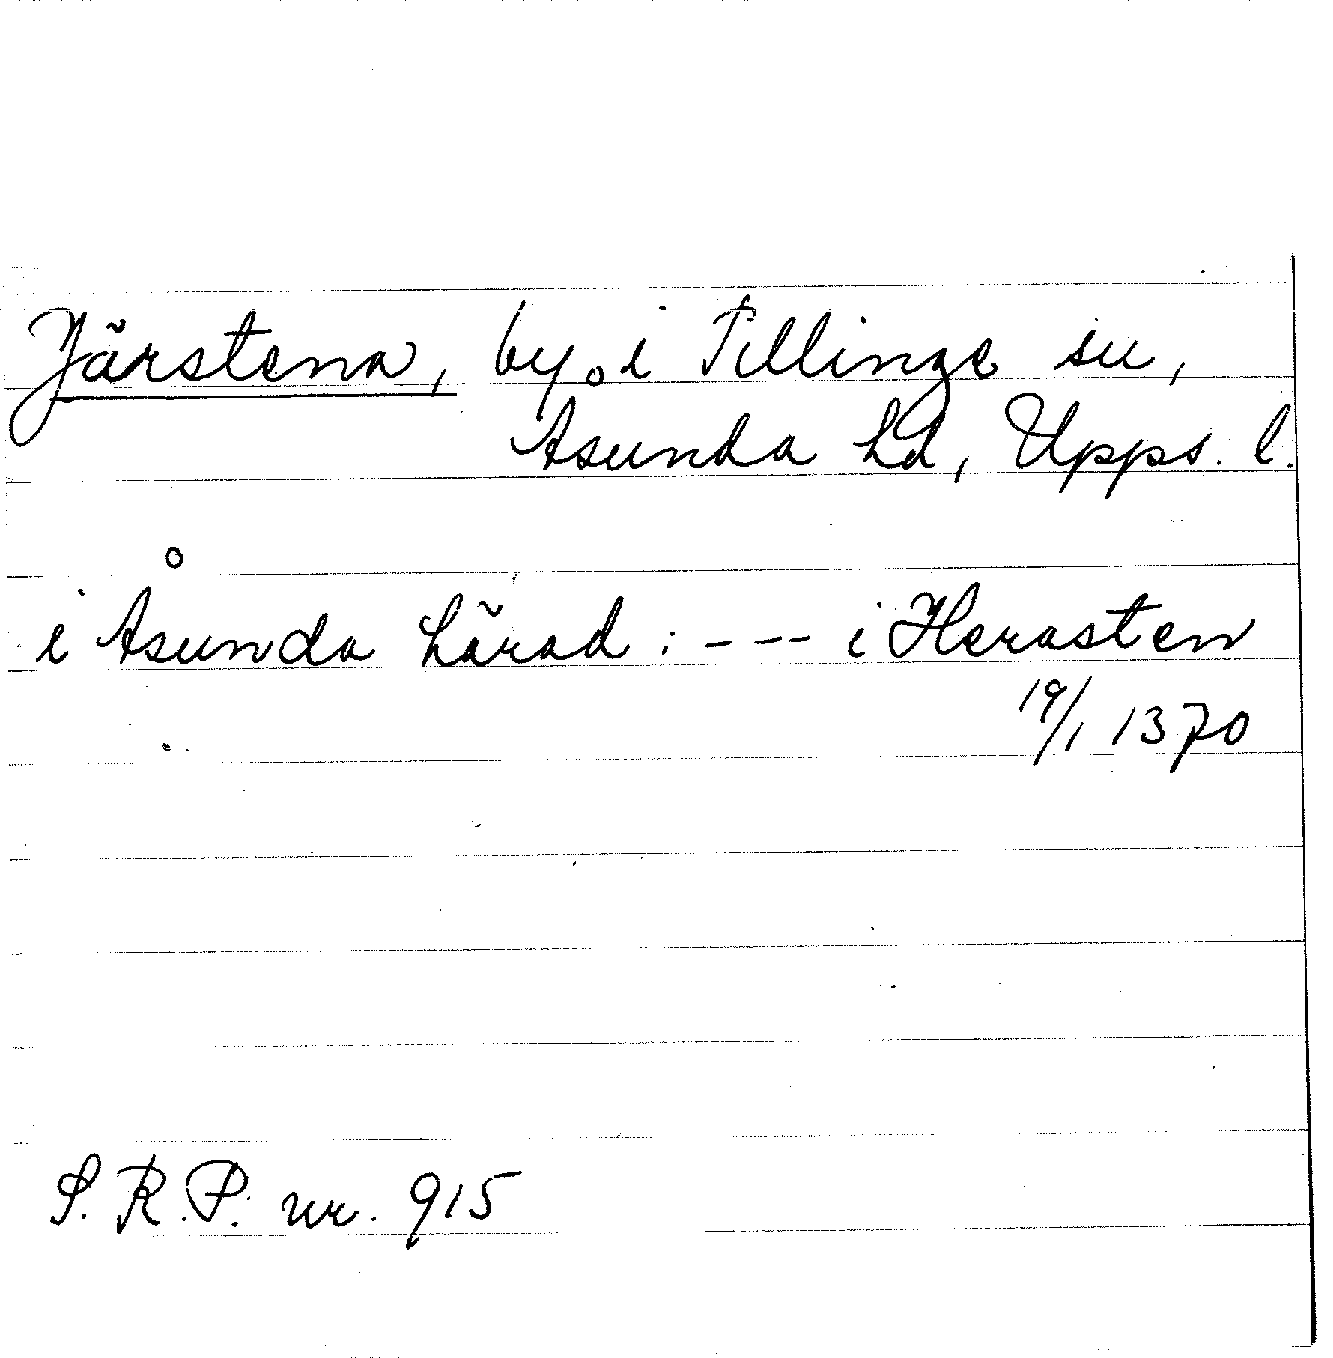 Järstena, by i Tillinge sn,
Åsunda hd, Upps. l.
i Åsunda härad : --- i Herasten
19/1 1370
S.R.P. nr. 915